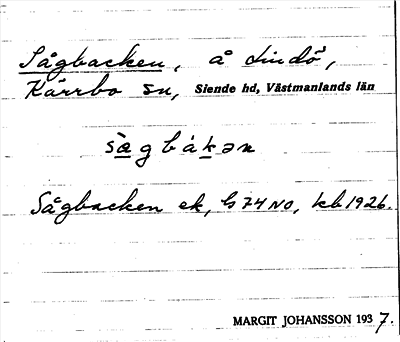 Sågbacken, å Lindö,
Kärrbo sn, Siende hd, Västmanlands län
sägbákən
Sågbacken ek, G 74 NO, kb 1926.
MARGIT JOHANSSON 1937.